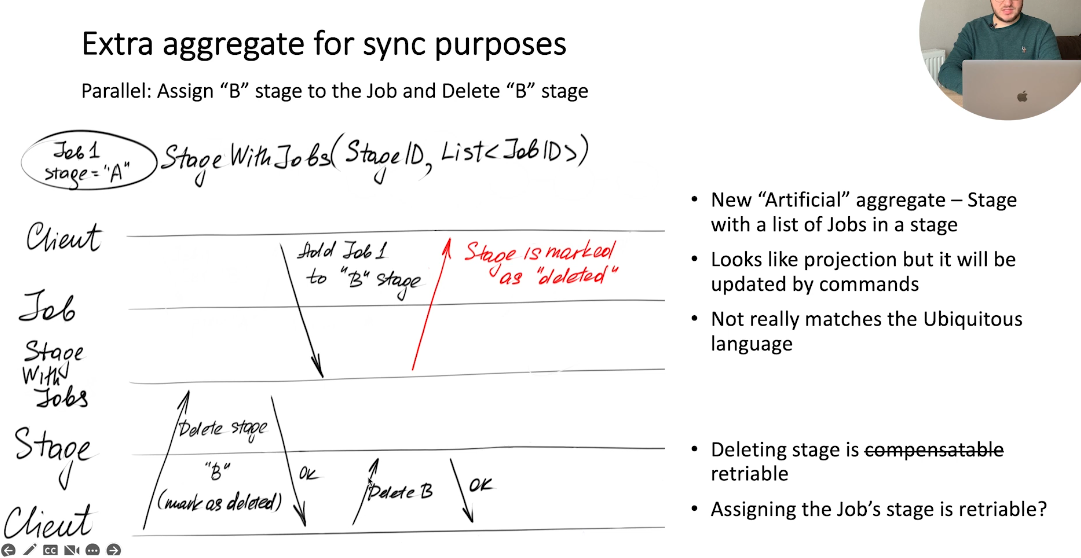 Extra aggregate for sync purposes
Parallel: Assign “B” stage to the Job and Delete “B” stage
Job 1
stage = "A"
Stage With Jobs (Stage ID, List<Job ID>)
Client
Add Job 1
to "B" stage
Stage is marked
as "deleted"
Job
Stage
With
Jobs
Delete stage
"B"
(mark as deleted)
OK
Stage
Delete B
OK
Client
• New “Artificial” aggregate – Stage
with a list of Jobs in a stage
• Looks like projection but it will be
updated by commands
• Not really matches the Ubiquitous
language
• Deleting stage is compensatable
retriable
• Assigning the Job’s stage is retriable?
CC